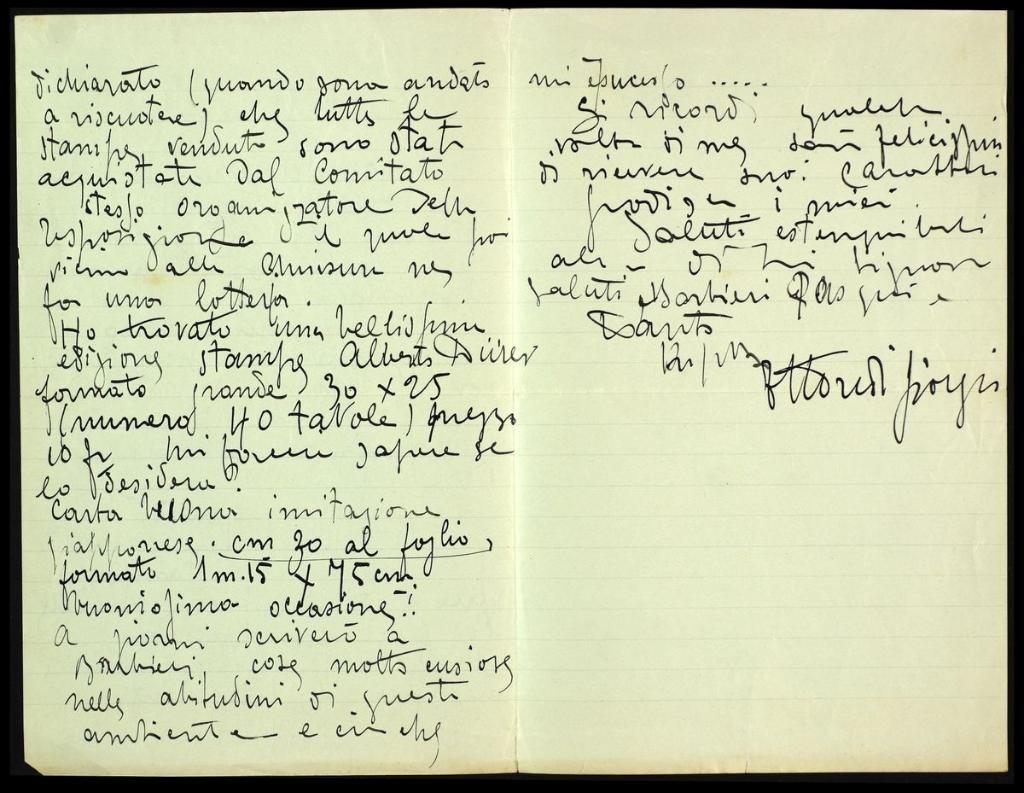 dichiarato (quando sono andato
a riscuotere) che tutte le
stampe vendute sono state
acquistate dal Comitato
stesso organizzatore della
Esposizione il quale poi
vicino alla chiusura ne
fa una lotteria.
Ho trovato una bellissima
edizione stampe Alberto Dürer
formato grande 30 x 25
(numero 40 tavole) prezzo
10 fr mi faccia sapere se
lo desidera?
Carta velina imitazione
giapponese. cm 30 al foglio,
formato 1m.15 x 75 cm.
buonissima occasione!!
A giorni scriverò a
Barbieri cose molto curiose
nelle abitudini di questo
ambiente e ciò che
mi è successo ......
Si ricordi qualche
volta di me, sarò felicissimo
di ricevere suoi caratteri
i miei
saluti
di lei signora
saluti Barbieri e
Ettore di Giorgio